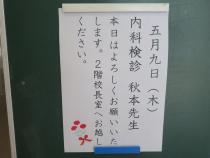 五月九日（木）
内科検診 秋本先生
本日はよろしくお願いいた
します。２階校長室へお越し
ください。